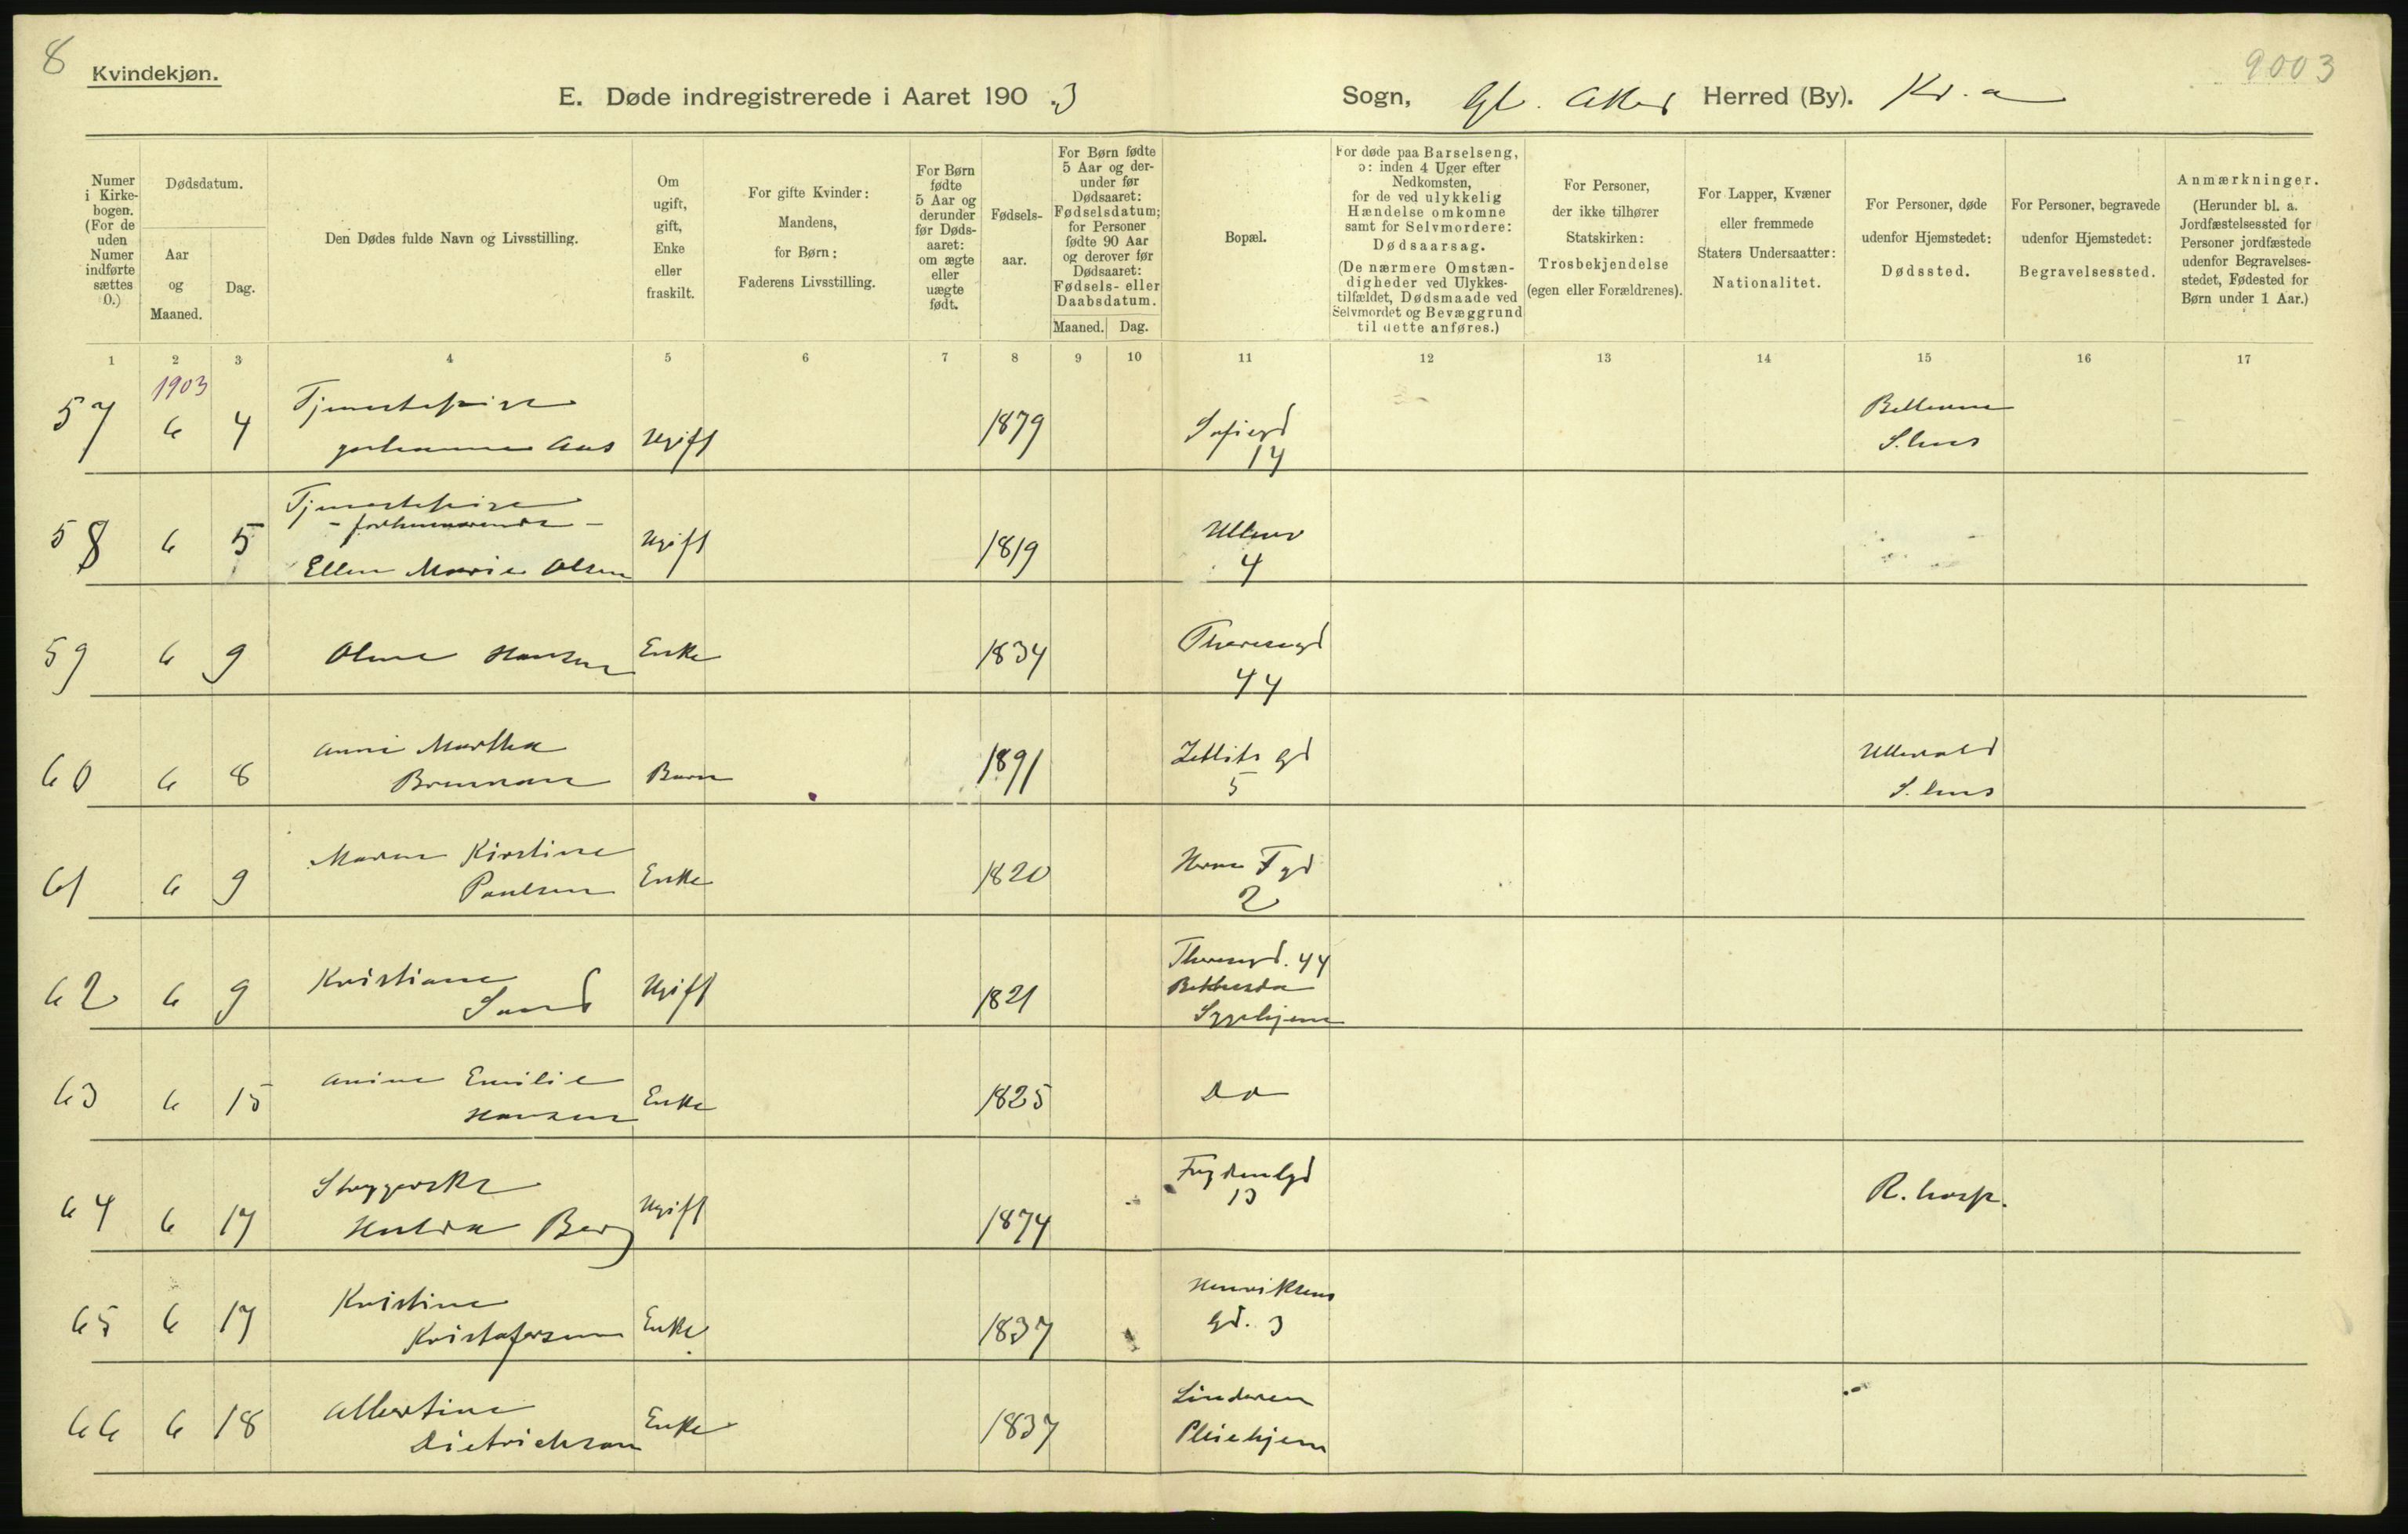 8
Kvindekjøn.
9003
E. Døde indregistrerede i Aaret 190.3
Sogn, Gl. Aker Herred (By). Kr.a
Numer i Kirkebogen. (For de uden Numer indførte sættes 0.)
Dødsdatum.
Aar og Maaned.
Dag.
Den Dødes fulde Navn og Livsstilling.
Om ugift, gift, Enke eller fraskilt.
For gifte Kvinder: Mandens, for Børn: Faderens Livsstilling.
For Børn fødte 5 Aar og derunder før Dødsaaret: om ægte eller uægte født.
Fødselsaar.
For Børn fødte 5 Aar og derunder før Dødsaaret: Fødselsdatum; for Personer fødte 90 Aar og derover før Dødsaaret: Fødsels- eller Daabsdatum.
Maaned. Dag.
Bopæl.
For døde paa Barselseng, ɔ: inden 4 Uger efter Nedkomsten, for de ved ulykkelig Hændelse omkomne samt for Selvmordere: Dødsaarsag. (De nærmere Omstændigheder ved Ulykkestilfældet, Dødsmaade ved Selvmordet og Bevæggrund til dette anføres.)
For Personer, der ikke tilhører Statskirken: Trosbekjendelse (egen eller Forældrenes).
For Lapper, Kvæner eller fremmede Staters Undersaatter: Nationalitet.
For Personer, døde udenfor Hjemstedet: Dødssted.
For Personer, begravede udenfor Hjemstedet: Begravelsessted.
Anmærkninger. (Herunder bl. a. Jordfæstelsessted for Personer jordfæstede udenfor Begravelsesstedet, Fødested for Børn under 1 Aar.)
1 2 3 4 5 6 7 8 9 10 11 12 13 14 15 16 17
1903
57 6 4 Tjenestepige Johanne Aas Ugift 1879 Sofiegd 14 S.hus
58 6 5 Tjenestepige - forhenværende - Ellen Marie Olsen Ugift 1819 Ullev 4
59 6 9 Oline Hansen Enke 1834 Theresegd 44
60 6 8 Anna Martha Barn 1891 Zetlits gd 5 Ullevold S.hus
61 6 9 Maren Kirstine Paulsen Enke 1820 gd 2
62 6 9 Kristiane Sand Ugift 1821 Theresegd. 44 Bethesda Sygehjem
63 6 15 Anine Emilie Hansen Enke 1825 Do
64 6 17 Strygerske Hulda Berg Ugift 1874 13 R. hosp.
65 6 17 Kristine Kristofersen Enke 1837 Henriksens gd. 3
66 6 18 Albertine Dietrichson Enke 1837 Linderen Pleiehjem